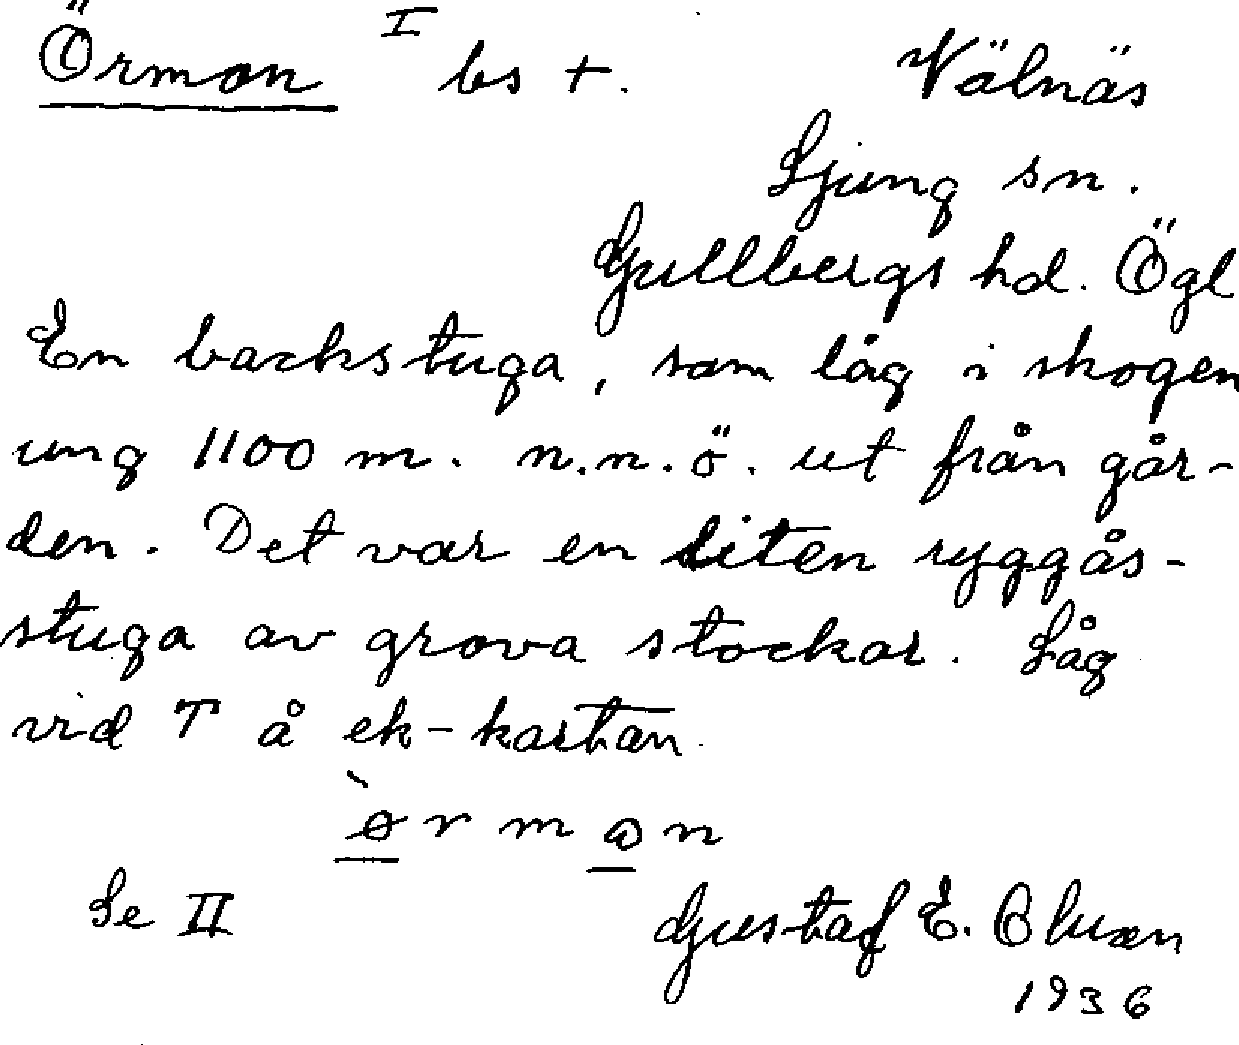 Örmon I bs +. Välnäs
Ljung sn.
Gullbergs hd. Ögl
En backstuga, som låg i skogen
ung 1100 m. n.n.ö. ut från går-
den. Det var en liten ryggås-
stuga av grova stockar. Låg
vid T å ek-kartan.
ø̀ r m ɷ n
Se II Gustaf E.
1936